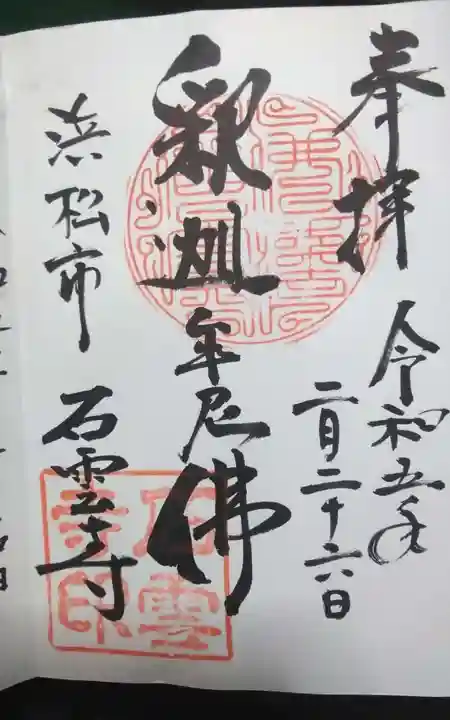 奉拝
令和五年
二月二十六日
釈迦牟尼佛
浜松市 石雲寺
石雲
寺印